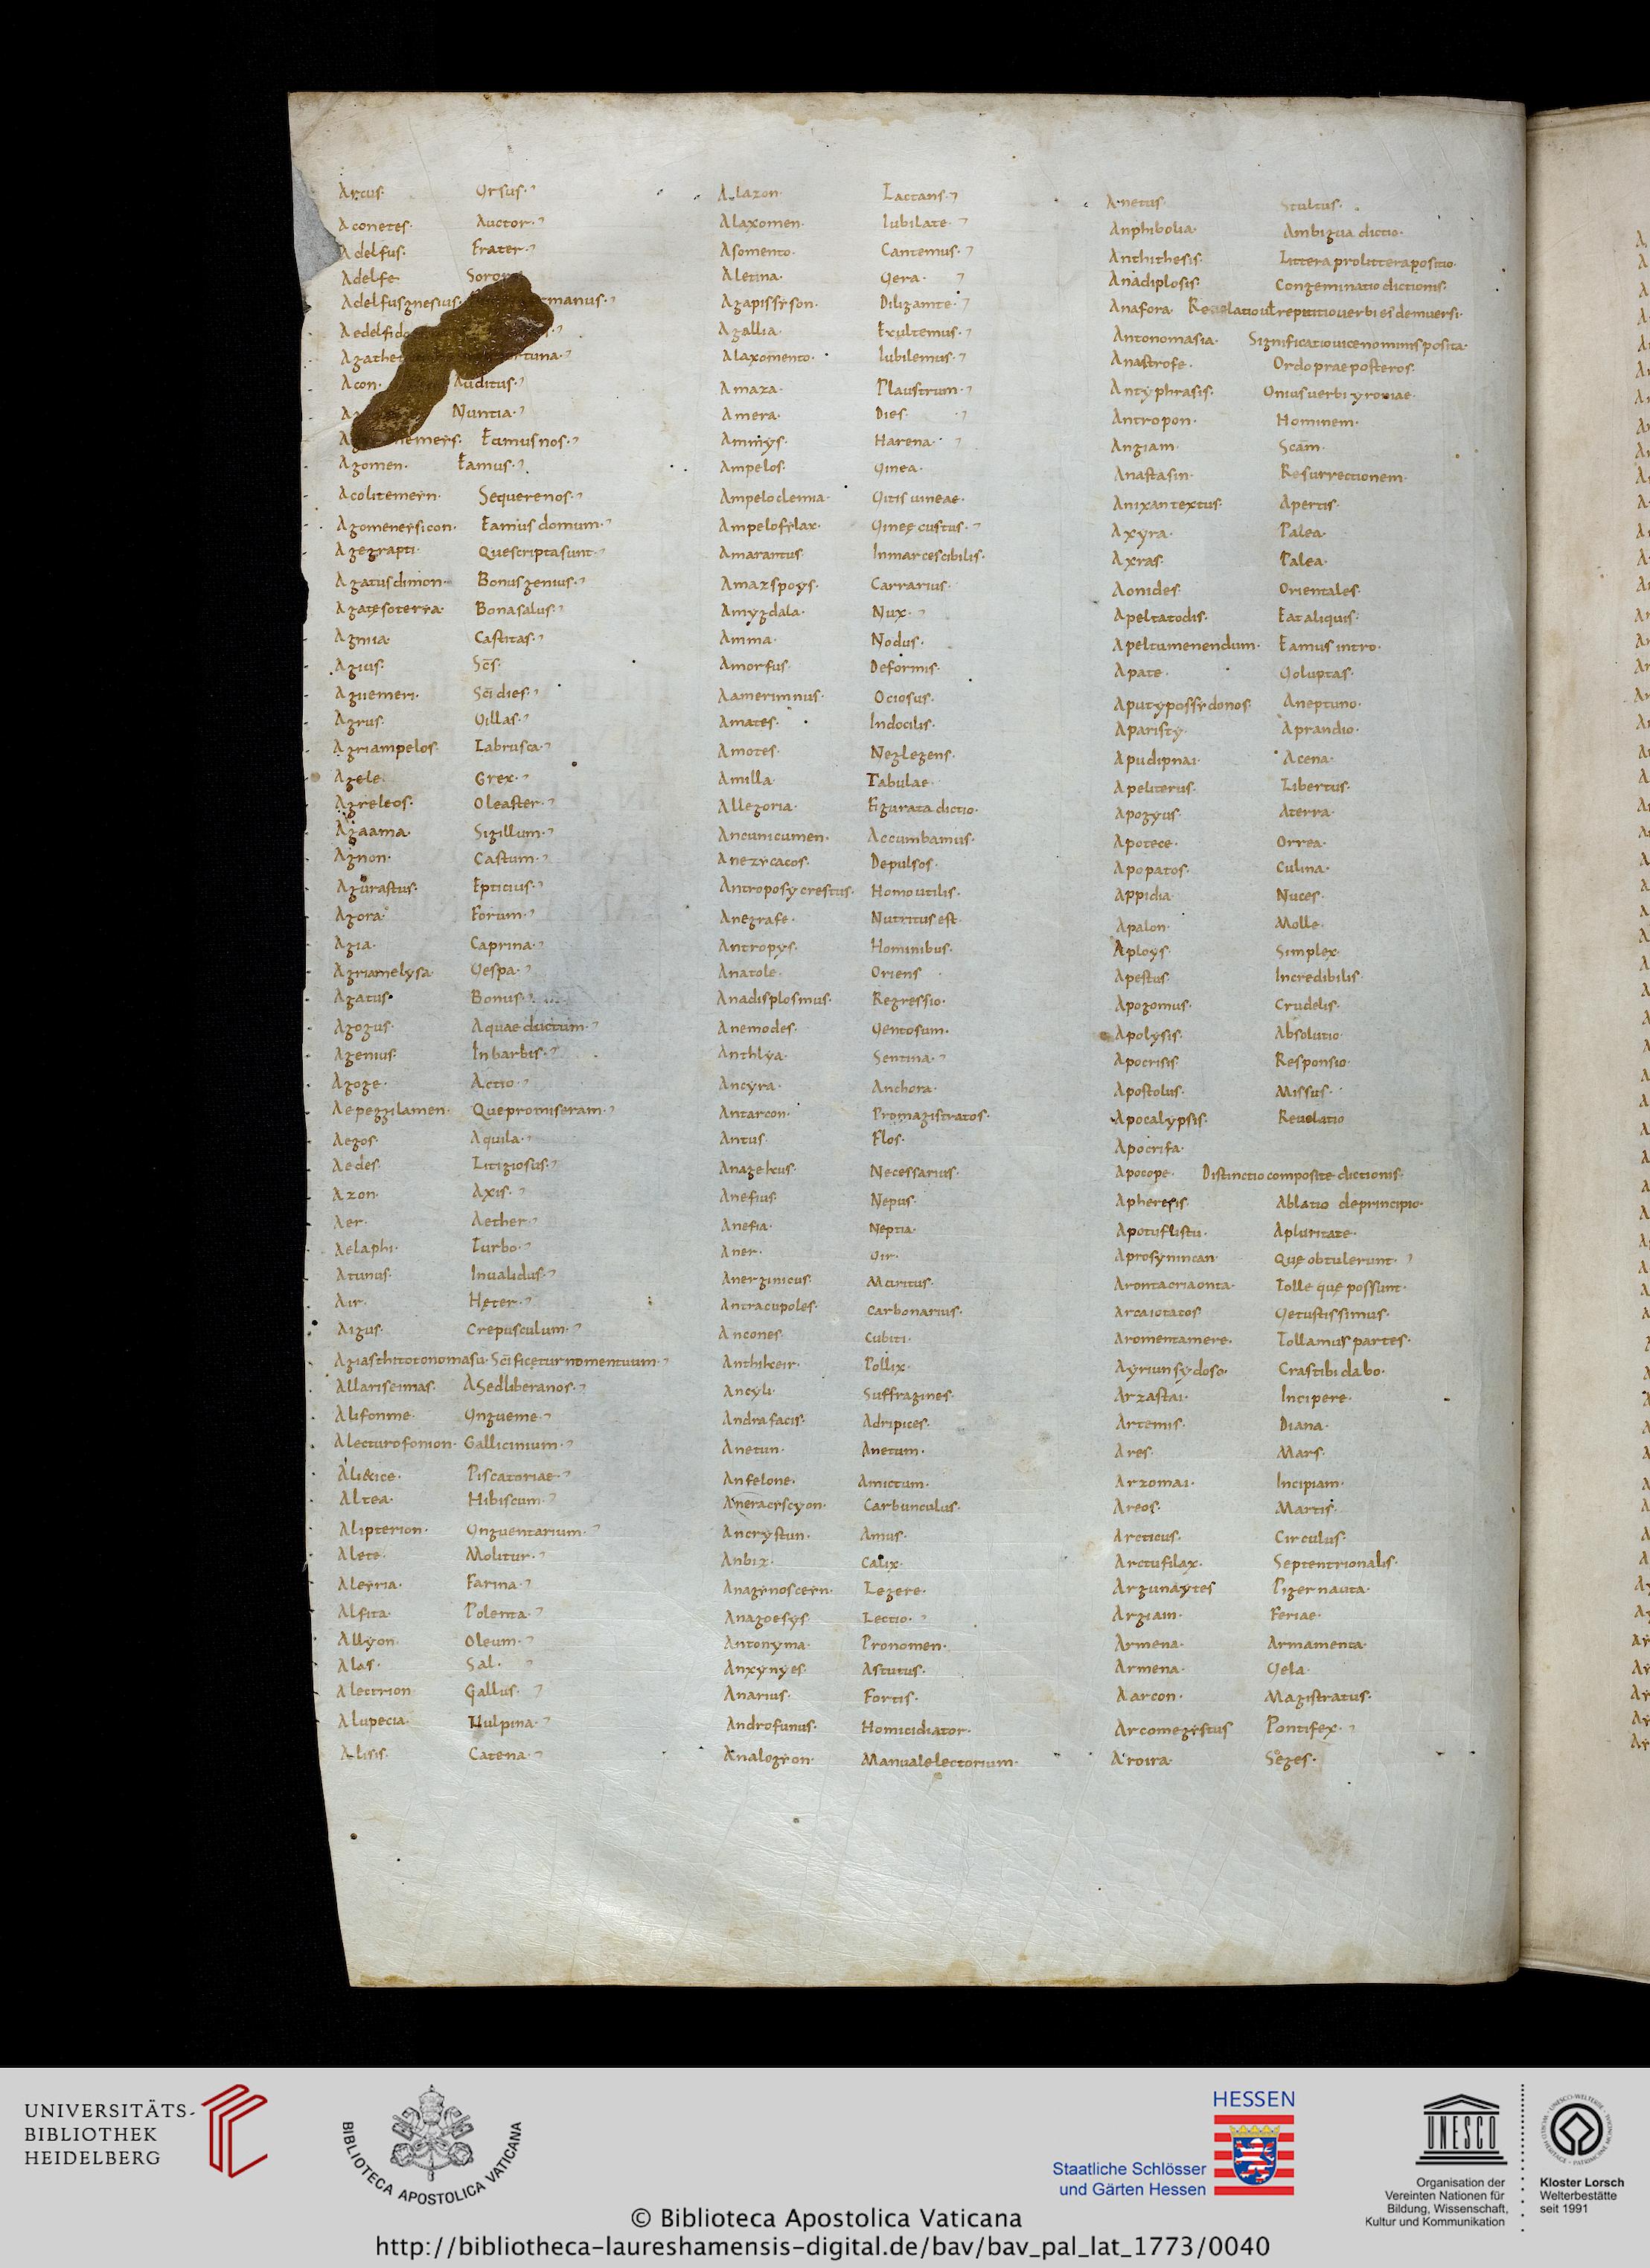 Arcus. Ursus.
Aconetes. Auctor.
Adelfus. Frater.
Adelfe. Soror
Adelfusgnesius. manus.
Aedelfid
Agathe tuna.
Acon. Auditus.
Nuntia.
emers. Eamusnos.
Agomen. Eamus.
Acolitemern. Sequerenos.
Agomenersicon. Eamus domum.
Agegrapti. Quescriptasunt.
Agatusdimon. Bonusgenius.
Agatesoterra. Bonasalus.
Agnia. Castitas.
Agius. Scs.
Aguemeri. Sci dies.
Agrus. Uillas.
Agriampelos. Labrusca.
Agele. Grex.
Agreleos. Oleaster.
Agaama. Sigillum.
Agnon. Castum.
Agurastus. Epticius.
Agora. Forum.
Agia. Caprina.
Agriamelysa. Uespa.
Agatus. Bonus.
Agogus. Aquae ductum.
Agenius. Inbarbis.
Agoge. Actio.
Aepeggilamen. Quepromiseram.
Aegos. Aquila.
Aedes. Litigiosus.
Azon. Axis.
Aer. Aether.
Aelaphi. Turbo.
Atunus. Inualidus.
Air. Heter.
Aigus. Crepusculum.
Agiasthitotonomasu. Scificeturnomentuum.
Allariseimas. ASedliberanos.
Alifonme. Ungueme.
Alecturofonion. Gallicinium.
Ali&ice. Piscatoriae.
Altea. Hibiscum.
Alipterion. Unguentarium.
Alete. Molitur.
Alerria. Farina.
Alfita. Polenta.
Allyon. Oleum.
Alas. Sal.
Alectrion. Gallus.
Alupecia. Uulpina.
Alisis. Catena.
Alazon. Lactans.
Alaxomen. Iubilate.
Asomento. Cantemus.
Aletina. Uera.
Agapissyson. Diligamte.
Agallia. Exultemus.
Alaxomento. Iubilemus.
Amaza. Plaustrum.
Amera. Dies.
Ammys. Harena.
Ampelos. Uinea.
Ampeloclema. Uitis uineae.
Ampelofylax. Uinee custus.
Amarantus. Inmarcescibilis.
Amazspoys. Carrarius.
Amygdala. Nux.
Amma. Nodus.
Amorfus. Deformis.
Aamerimnus. Ociosus.
Amates. Indocilis.
Amotes. Neglegens.
Amilla. Tabulae.
Allegoria. Figurata dictio.
Ancunicumen. Accumbamus.
Anezycacos. Depulsos.
Antroposycrestus. Homoutilis.
Anegrafe. Nutritus est.
Antropys. Hominibus.
Anatole. Oriens.
Anadisplosmus. Regressio.
Anemodes. Uentosum.
Anthlya. Sentina.
Ancyra. Anchora.
Antarcon. Promagistratos.
Antus. Flos.
Anageus. Necessarius.
Anefius. Nepus.
Anefia. Neptia.
Aner. Uir.
Anerginicus. Maritus.
Antracopoles. Carbonarius.
Ancones. Cubiti.
Anthikeir. Pollix.
Ancyli. Suffragines.
Andrafacis. Adripices.
Anetun. Anetum.
Anfelone. Amictum.
Aneracrscyon. Carbunculus.
Ancrystun. Amus.
Anbix. Calix.
Anagynoscern. Legere.
Anagoesys. Lectio.
Antonyma. Pronomen.
Anxynyes. Astutus.
Anarius. Fortis.
Androfunus. Homicidiator.
Analogyon. Manualelectorium.
Anetus. Stultus.
Anphibolia. Ambigua dictio.
Anthithesis. Littera prolitterapositio.
Anadiplosis. Congeminatio dictionis.
Anafora. Reuelatioutrepititiouerbieiusdemuersi.
Antonomasia. Significatiouicenominisposita.
Anastrofe. Ordo praeposteros.
Antyphrasis. Uniusuerbi yroniae.
Antropon. Hominem.
Angiam. Scam.
Anastasin. Resurrectionem.
Anixantextus. Apertis.
Axyra. Palea.
Axras. Palea.
Aonides. Orientales.
Apeltatodis. Eat aliquis.
Apeltumenendum. Eamus intro.
Apate. Uoluptas.
Aputypossydonos. Aneptuno.
Aparisty. Aprandio.
Apudipnai. Acena.
Apeliterus. Libertus.
Apogyus. Aterra.
Apotece. Orrea.
Apopatos. Culina.
Appidia. Nuces.
Apalon. Molle.
Aploys. Simplex.
Apestus. Incredibilis.
Apogomus. Crudelis.
Apolysis. Absolutio.
Apocrisis. Responsio.
Apostolus. Missus.
Apocalypsis. Reuelatio
Apocrifa.
Apocope. Distinctio composite dictionis.
Apheresis. Ablatio deprincipio.
Apotuflistu. Apluritate.
Aprosynincan. Que obtulerunt.
Arontacriaonta. Tolle que possunt.
Arcaiotatos. Uetustissimus.
Aromentamere. Tollamus partes.
Ayriunsydoso. Crastibi dabo.
Arzastai. Incipere.
Artemis. Diana.
Ares. Mars.
Arzomai. Incipiam.
Areos. Martis.
Arcticus. Circulus.
Arctufilax. Septentrionalis.
Argunaytes Piger nauta.
Argiam. Feriae.
Armena. Armamenta.
Armena. Uela.
Aarcon. Magistratus.
Arcomegystus Pontifex.
Aroira. Seges.
UNIVERSITÄTS-
BIBLIOTHEK
HEIDELBERG
BIBLIOTECA APOSTOLICA VATICANA
HESSEN
Staatliche Schlösser
und Gärten Hessen
UNESCO
Organisation der
Vereinten Nationen für
Bildung, Wissenschaft,
Kultur und Kommunikation
Kloster Lorsch
Welterbestätte
seit 1991
© Biblioteca Apostolica Vaticana
http://bibliotheca-laureshamensis-digital.de/bav/bav_pal_lat_1773/0040